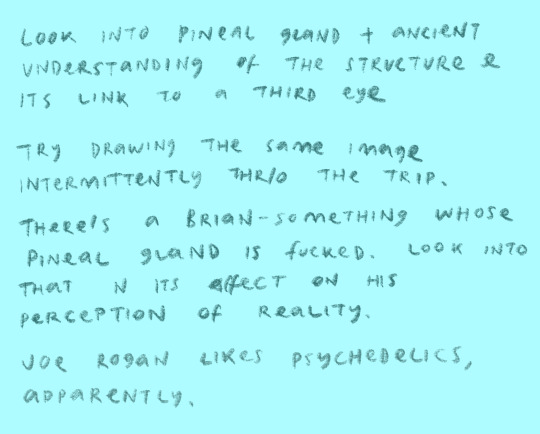 LOOK INTO PINEAL GLAND + ANCIENT
UNDERSTANDING OF THE STRUCTURE &
ITS LINK TO A THIRD EYE
TRY DRAWING THE SAME IMAGE
INTERMITTENTLY THR/O THE TRIP.
THERE'S A BRIAN-SOMETHING WHOSE
PINEAL GLAND IS FUCKED. LOOK INTO
THAT N ITS AFFECT ON HIS
PERCEPTION OF REALITY.
JOE ROGAN LIKES PSYCHEDELICS,
APPARENTLY.